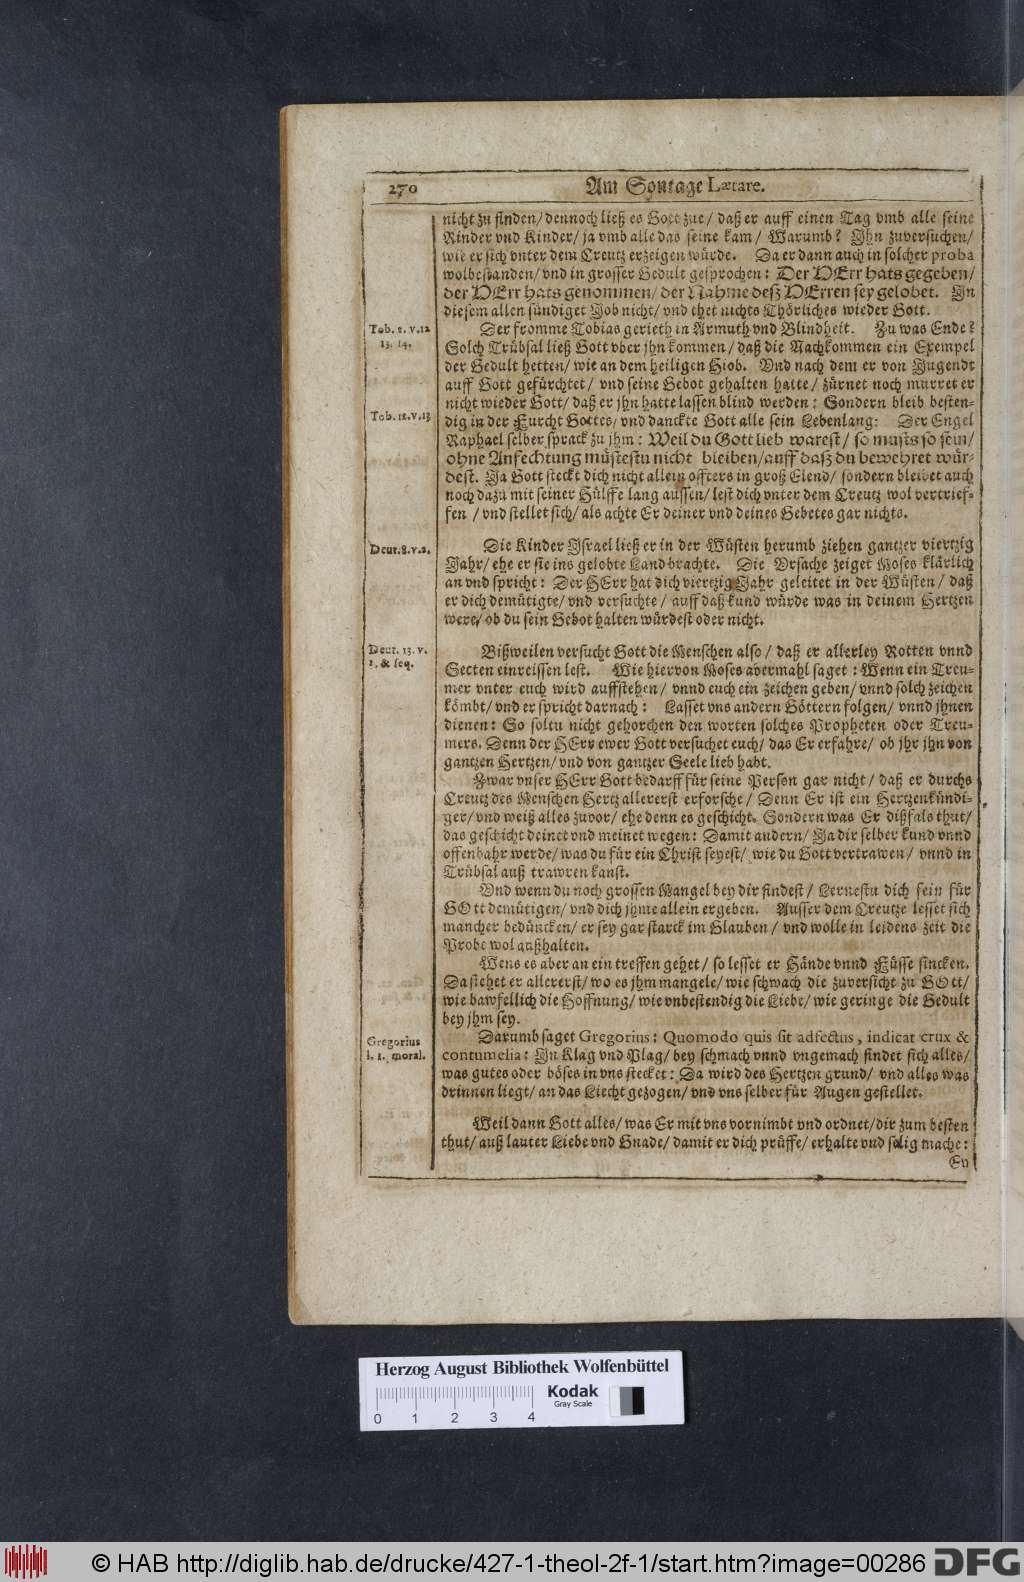 270
Am Sontage Lætare.
nicht zu finden/ dennoch ließ es Gott zue/ daß er auff einen Tag vmb alle seine
Rinder vnd Kinder/ ja vmb alle das seine kam/ Warumb? Ihn zuversuchen/
wie er sich vnter dem Creutz erzeigen würde. Da er dann auch in solcher proba
wolbestanden/ vnd in grosser Gedult gesprochen: Der HErr hats gegeben/
der HErr hats genommen/ der Nahme deß HErren sey gelobet. In
diesem allen sündiget Job nicht/ vnd thet nichts Thörliches wieder Gott.
Tob. 2. v. 12
13. 14.
Der fromme Tobias gerieth in Armuth vnd Blindheit. Zu was Ende?
Solch Trübsal ließ Gott vber jhn kommen/ daß die Nachkommen ein Exempel
der Gedult hetten/ wie an dem heiligen Hiob. Vnd nach dem er von Jugendt
auff Gott gefürchtet/ vnd seine Gebot gehalten hatte/ zürnet noch murret er
nicht wieder Gott/ daß er jhn hatte lassen blind werden: Sondern bleib besten-
Tob. 12. v. 13
dig in der Furcht Gottes/ vnd danckte Gott alle sein Lebenlang: Der Engel
Raphael selber sprack zu jhm: Weil du Gott lieb warest/ so musts so sein/
ohne Anfechtung müstestu nicht bleiben/ auff daß du bewehret wür-
dest. Ja Gott steckt dich nicht allein offters in groß Elend/ sondern bleibet auch
noch dazu mit seiner Hülffe lang aussen/ lest dich vnter dem Creutz wol vertrief-
fen / vnd stellet sich/ als achte Er deiner vnd deines Gebetes gar nichts.
Deut. 8. v. 2.
Die Kinder Israel ließ er in der Wüsten herumb ziehen gantzer viertzig
Jahr/ ehe er sie ins gelobte Land brachte. Die Vrsache zeiget Moses klärlich
an vnd spricht: Der HErr hat dich viertzig Jahr geleitet in der Wüsten/ daß
er dich demütigte/ vnd versuchte/ auff daß kund würde was in deinem Hertzen
were/ ob du sein Gebot halten würdest oder nicht.
Deut. 13. v.
1. & seq.
Bißweilen versucht Gott die Menschen also/ daß er allerley Rotten vnnd
Secten einreissen lest. Wie hiervon Moses abermahl saget: Wenn ein Treu-
mer vnter euch wird auffstehen/ vnnd euch ein zeichen geben/ vnnd solch zeichen
kömbt/ vnd er spricht darnach: Lasset vns andern Göttern folgen/ vnnd jhnen
dienen: So soltu nicht gehorchen den worten solches Propheten oder Treu-
mers. Denn der HErr ewer Gott versuchet euch/ das Er erfahre/ ob jhr jhn von
gantzen Hertzen/ vnd von gantzer Seele lieb habt.
Zwar vnser HErr Gott bedarff für seine Person gar nicht/ daß er durchs
Creutz des Menschen Hertz allererst erforsche/ Denn Er ist ein Hertzenkündi-
ger/ vnd weiß alles zuvor/ ehe denn es geschicht. Sondern was Er dißfals thut/
das geschicht deinet vnd meinet wegen: Damit andern/ Ja dir selber kund vnnd
offenbahr werde/ was du für ein Christ seyest/ wie du Gott vertrawen/ vnnd in
Trübsal auß trawren kanst.
Vnd wenn du noch grossen Mangel bey dir findest/ Lernestu dich sein für
GOtt demütigen/ vnd dich jhme allein ergeben. Ausser dem Creutze lesset sich
mancher bedüncken/ er sey gar starck im Glauben/ vnd wolle in leidens zeit die
Probe wol außhalten.
Wens es aber an ein treffen gehet/ so lesset er Hände vnnd Füsse sincken.
Da siehet er allererst/ wo es jhm mangele/ wie schwach die zuversicht zu GOtt/
wie bawfellich die Hoffnung/ wie vnbestendig die Liebe/ wie geringe die Gedult
bey jhm sey.
Gregorius
l. 2. moral.
Darumb saget Gregorius: Quomodo quis sit adfectus, indicat crux &
contumelia: In Klag vnd Plag/ bey schmach vnnd vngemach findet sich alles/
was gutes oder böses in vns stecket: Da wird des Hertzen grund/ vnd alles was
drinnen liegt/ an das Liecht gezogen/ vnd vns selber für Augen gestellet.
Weil dann Gott alles/ was Er mit vns vornimbt vnd ordnet/ dir zum besten
thut/ auß lauter Liebe vnd Gnade/ damit er dich prüffe/ erhalte vnd selig mache:
Ey
Herzog August Bibliothek Wolfenbüttel
0 1 2 3 4
Kodak
Gray Scale
© HAB http://diglib.hab.de/drucke/427-1-theol-2f-1/start.htm?image=00286
DFG